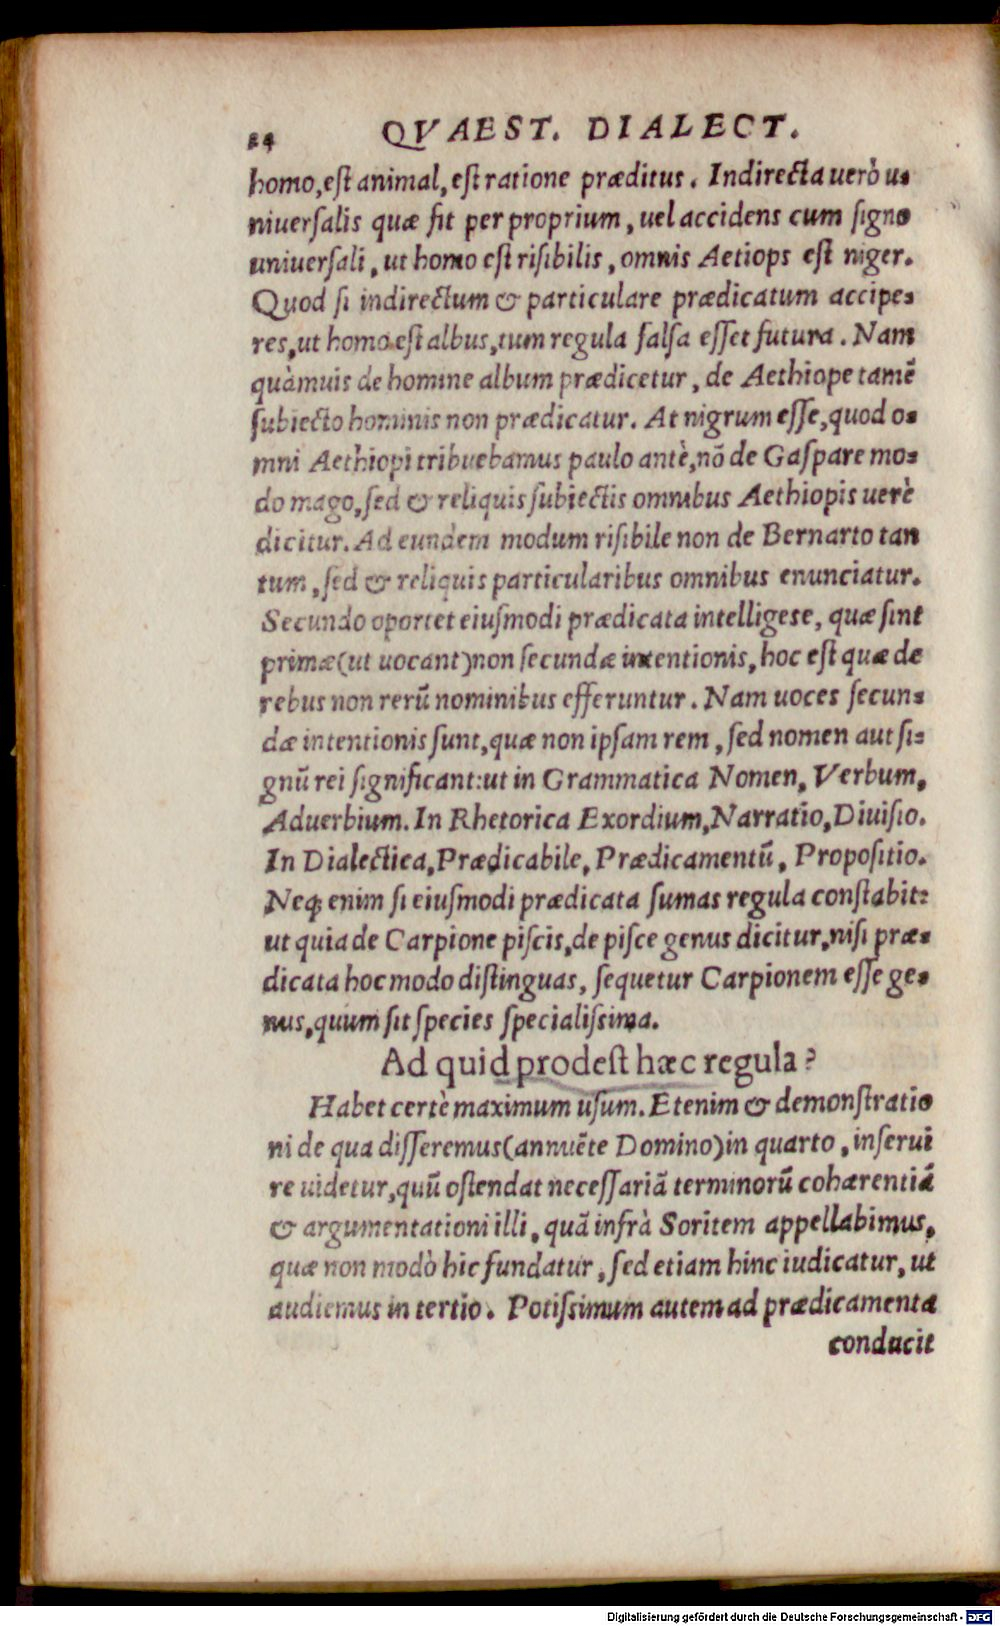 24 QVAEST. DIALECT.
homo, est animal, est ratione præditus. Indirecta uerò u-
niuersalis quæ fit per proprium, uel accidens cum signo
uniuersali, ut homo est risibilis, omnis Aetiops est niger.
Quod si indirectum & particulare prædicatum accipe-
res, ut homo est albus, tum regula falsa esset futura. Nam
quàmuis de homine album prædicetur, de Aethiope tamẽ
subiecto hominis non prædicatur. At nigrum esse, quod o-
mni Aethiopi tribuebamus paulo antè, nõ de Gaspare mo-
do mago, sed & reliquis subiectis omnibus Aethiopis uerè
dicitur. Ad eundem modum risibile non de Bernarto tan
tum, sed & reliquis particularibus omnibus enunciatur.
Secundo oportet eiusmodi prædicata intelligese, quæ sint
primæ (ut uocant) non secundæ intentionis, hoc est quæ de
rebus non rerũ nominibus efferuntur. Nam uoces secun-
dæ intentionis sunt, quæ non ipsam rem, sed nomen aut si-
gnũ rei significant: ut in Grammatica Nomen, Verbum,
Aduerbium. In Rhetorica Exordium, Narratio, Diuisio.
In Dialectica, Prædicabile, Prædicamentũ, Propositio.
Neq; enim si eiusmodi prædicata sumas regula constabit:
ut quia de Carpione piscis, de pisce genus dicitur, nisi præ-
dicata hoc modo distinguas, sequetur Carpionem esse ge-
nus, quum sit species specialissima.
Ad quid prodest hæc regula?
Habet certè maximum usum. Etenim & demonstratio
ni de qua disseremus (annuẽte Domino) in quarto, inserui
re uidetur, quũ ostendat necessariã terminorũ cohærentiã
& argumentationi illi, quã infrà Soritem appellabimus,
quæ non modò hic fundatur, sed etiam hinc iudicatur, ut
audiemus in tertio. Potissimum autem ad prædicamenta
conducit
Digitalisierung gefördert durch die Deutsche Forschungsgemeinschaft - DFG